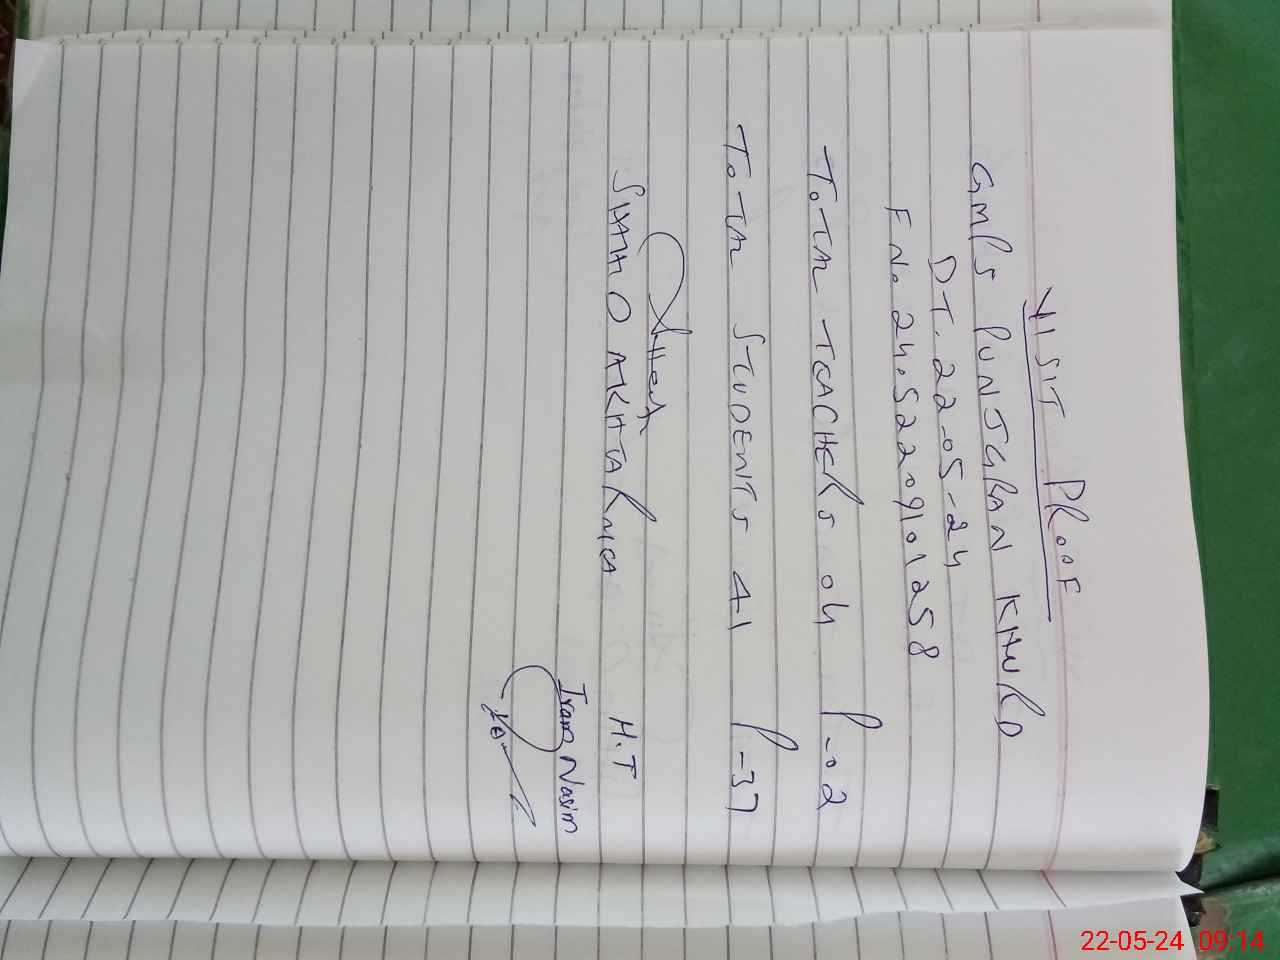 VISIT PROOF
GMPS PUNJGRAN KHURD
DT. 22-05-24
F No. 24.52209101258
TOTAL TEACHERS 04 P-02
TOTAL STUDENTS 41 P-37
AKHTAR
H.T
Iram Nasim
22-05-24 09:14